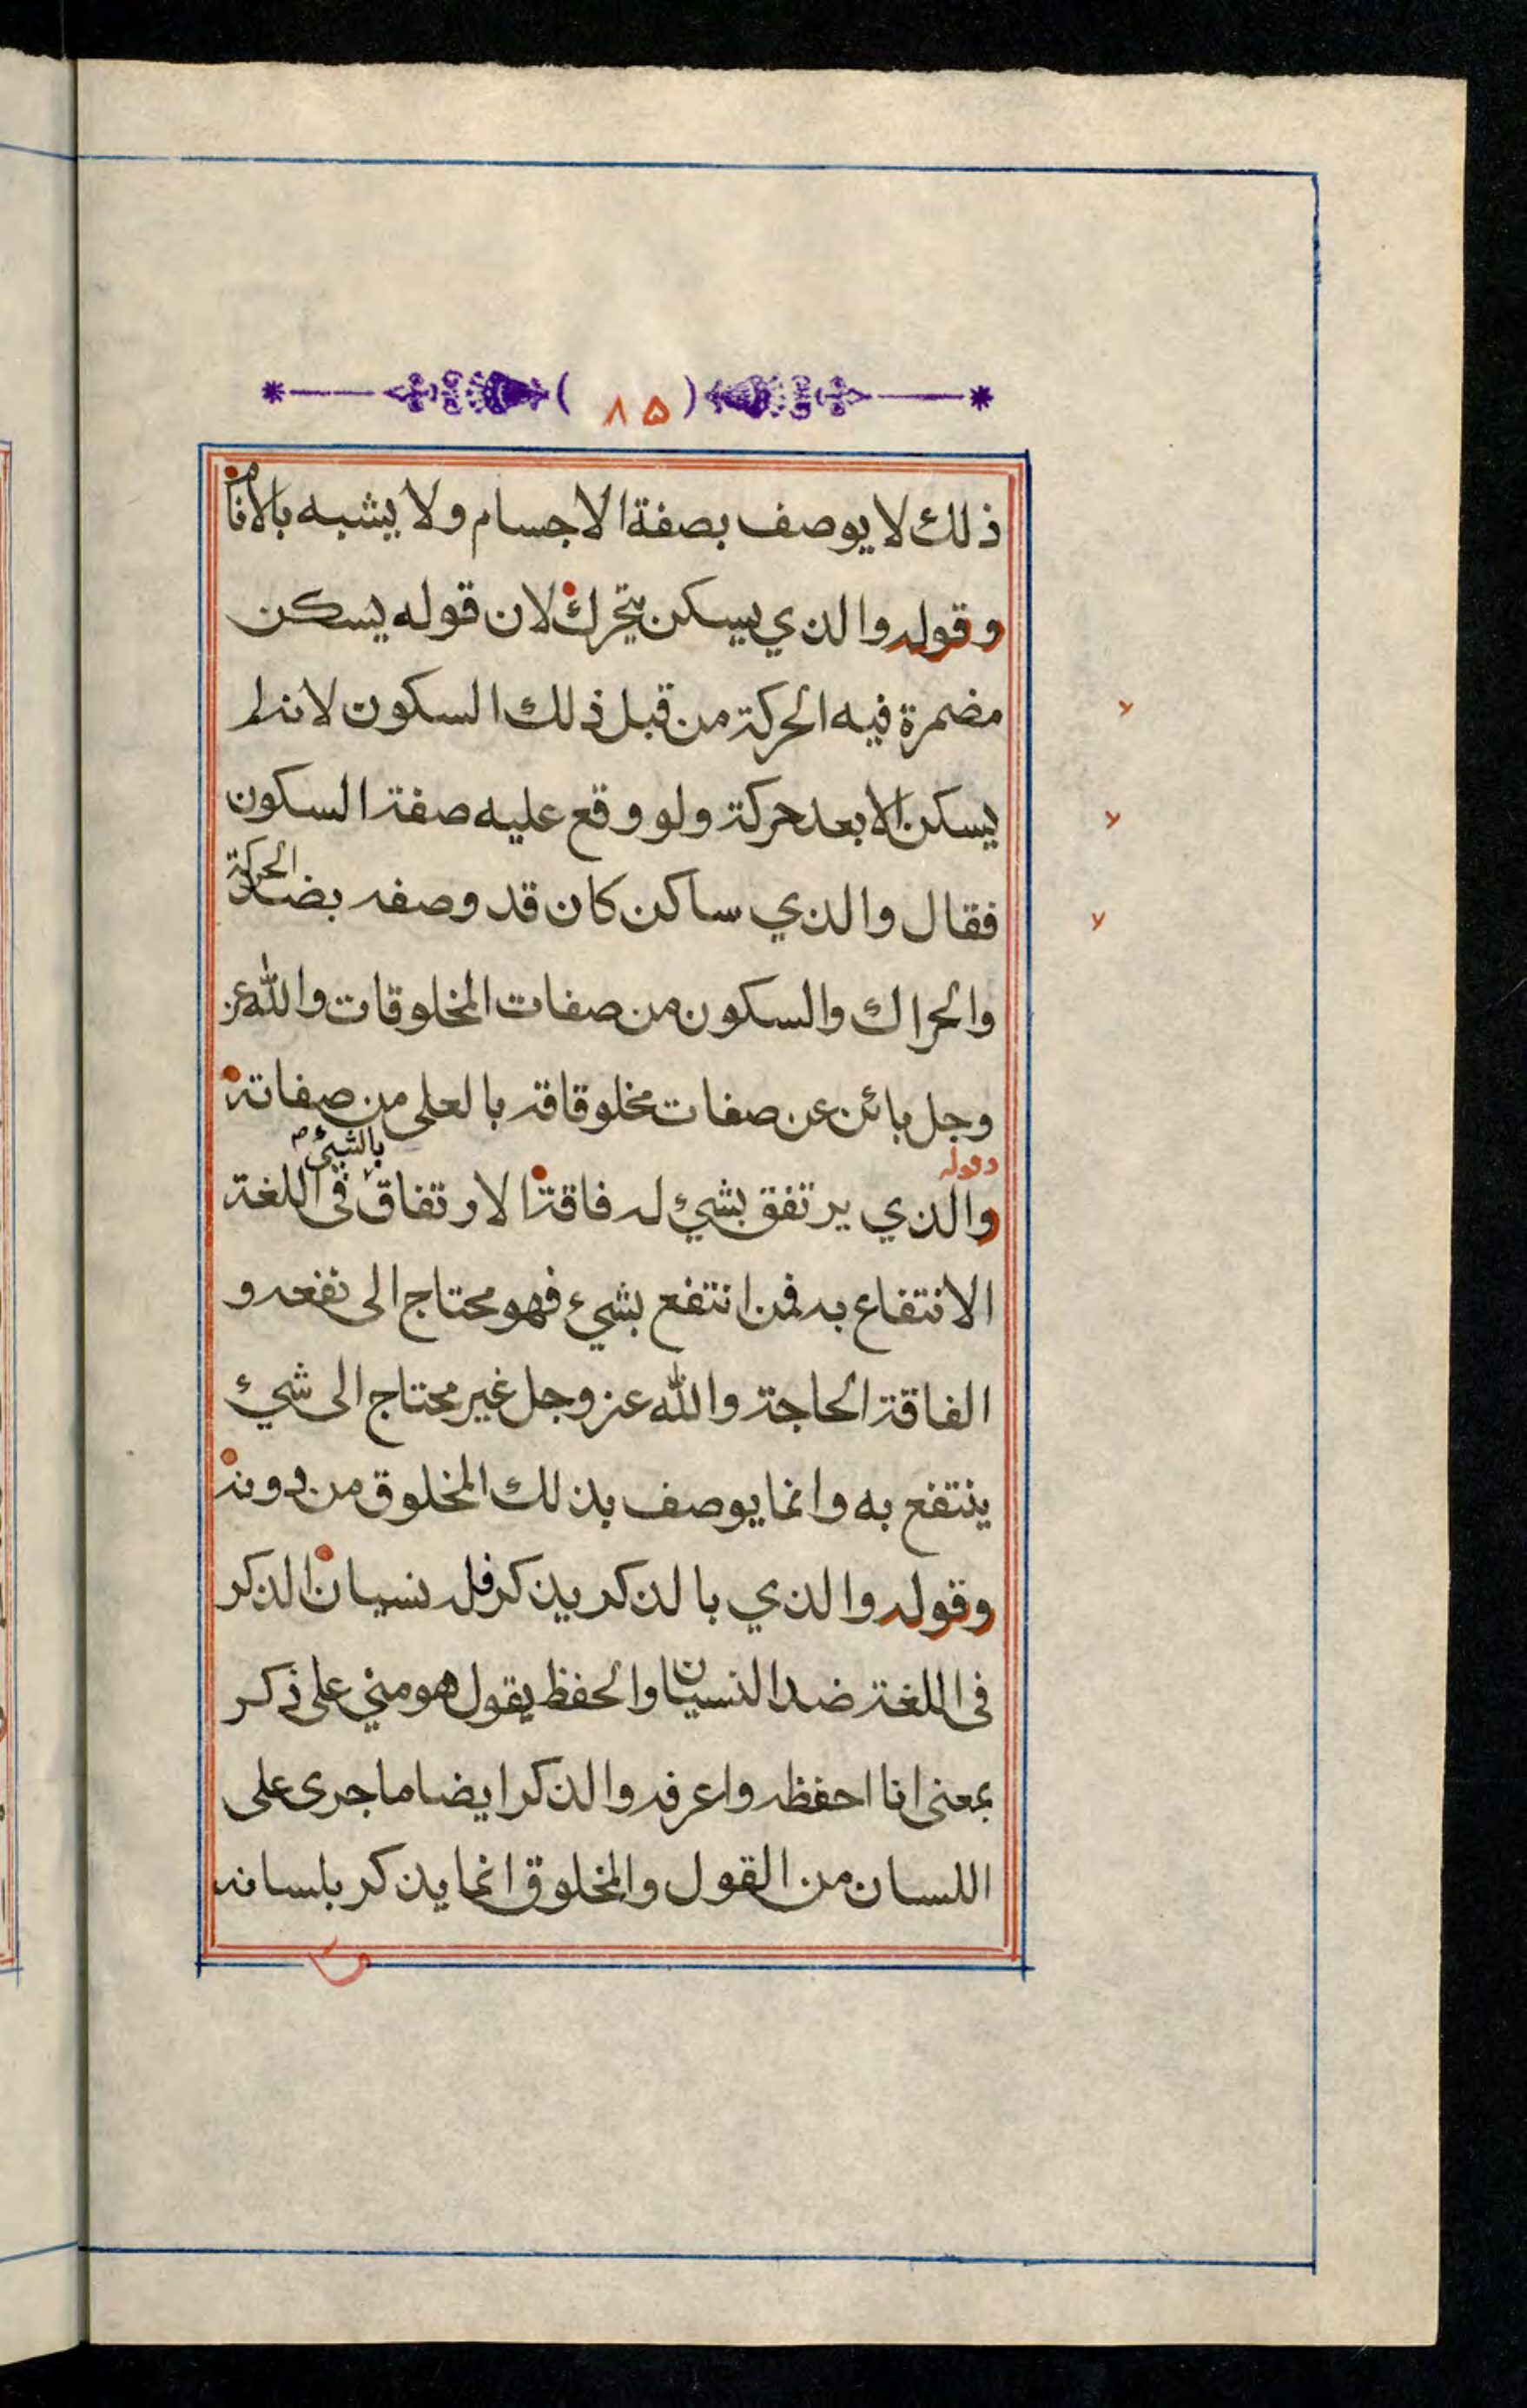 (٨٥)
ذلك لا يوصف بصفة الاجسام ولا يشبه بالانام
وقوله والذي يسكن يتحرك لان قوله يسكن
مضمرة فيه الحركة من قبل ذلك السكون لانه لم
يسكن الا بعد حركة ولو وقع عليه صفة السكون
فقال والذي ساكن كان قد وصفه بضد الحركة
والحراك والسكون من صفات المخلوقات والله عز
وجل بائن عن صفات مخلوقاته بالعلى من صفاته
وقوله والذي يرتفق بشيء له فاقة الارتفاق بالشيء في اللغة
الانتفاع به فمن انتفع بشيء فهو محتاج الى نفعه و
الفاقة الحاجة والله عز وجل غير محتاج الى شيء
ينتفع به وانما يوصف بذلك المخلوق من دونه
وقوله والذي بالذكر يذكر فله نسيان الذكر
في اللغة ضد النسيان والحفظ يقول هو مني على ذكر
بمعنى انا احفظه واعرفه والذكر ايضا ما جرى على
اللسان من القول والمخلوق انما يذكر بلسانه